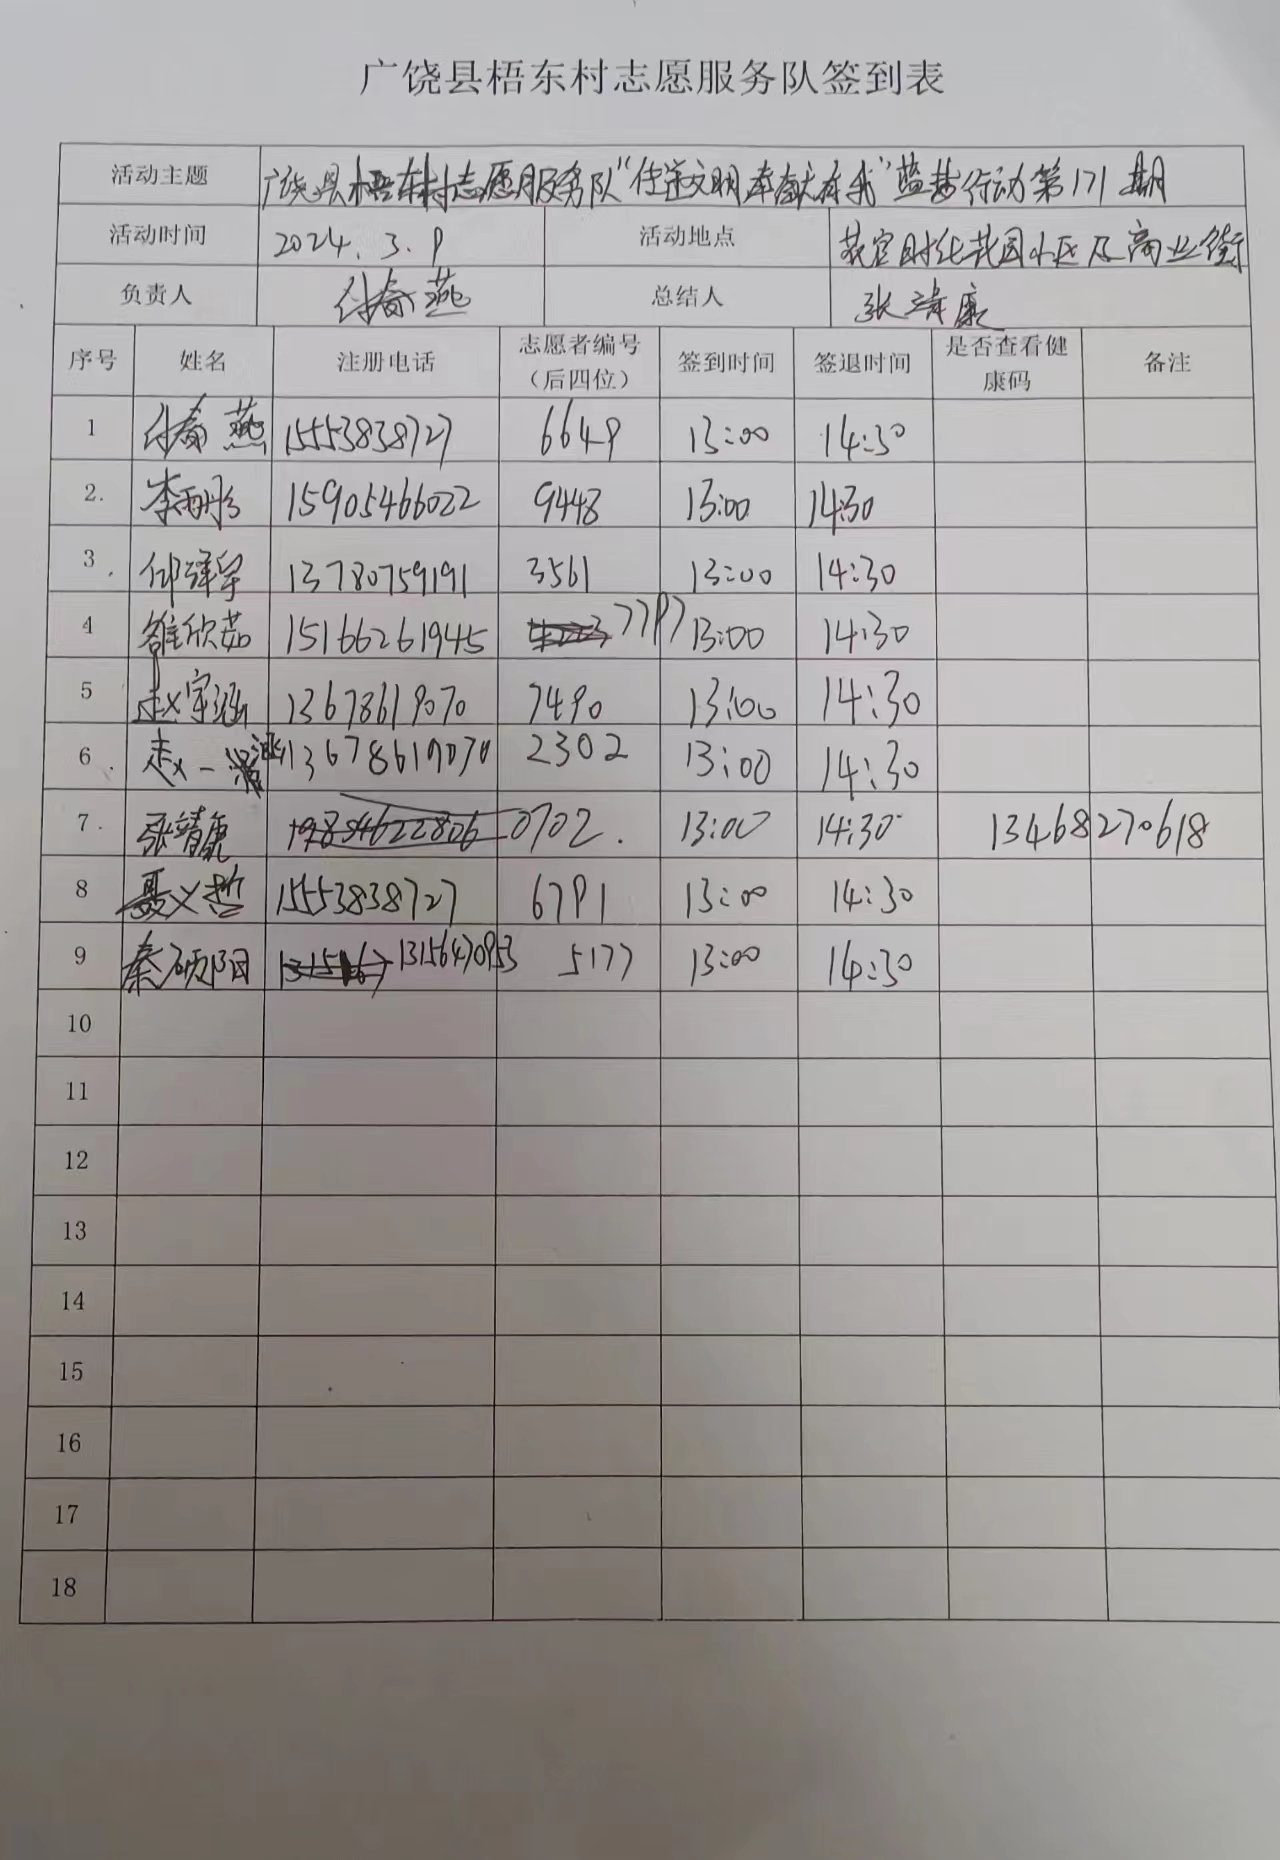 广饶县梧东村志愿服务队签到表
活动主题 广饶县梧东村志愿服务队“传递文明 奉献有我”蓝梦行动第171期
活动时间 2024.3.9 活动地点 花官时代花园小区及商业街
负责人 付春燕 总结人 张靖康
序号 姓名 注册电话 志愿者编号（后四位） 签到时间 签退时间 是否查看健康码 备注
1 付春燕 15553838727 6649 13:00 14:30
2. 李雨彤 15905466022 9448 13:00 14:30
3 13780759191 3561 13:00 14:30
4 欣茹 15166261945 7797 13:00 14:30
5 赵宇涵 13678619070 7490 13:00 14:30
6 赵一 13678619070 2302 13:00 14:30
7. 张靖康 0702. 13:00 14:30 13468270618
8 聂义哲 15553838727 6791 13:00 14:30
9 秦硕阳 13156470953 5177 13:00 14:30
10
11
12
13
14
15
16
17
18